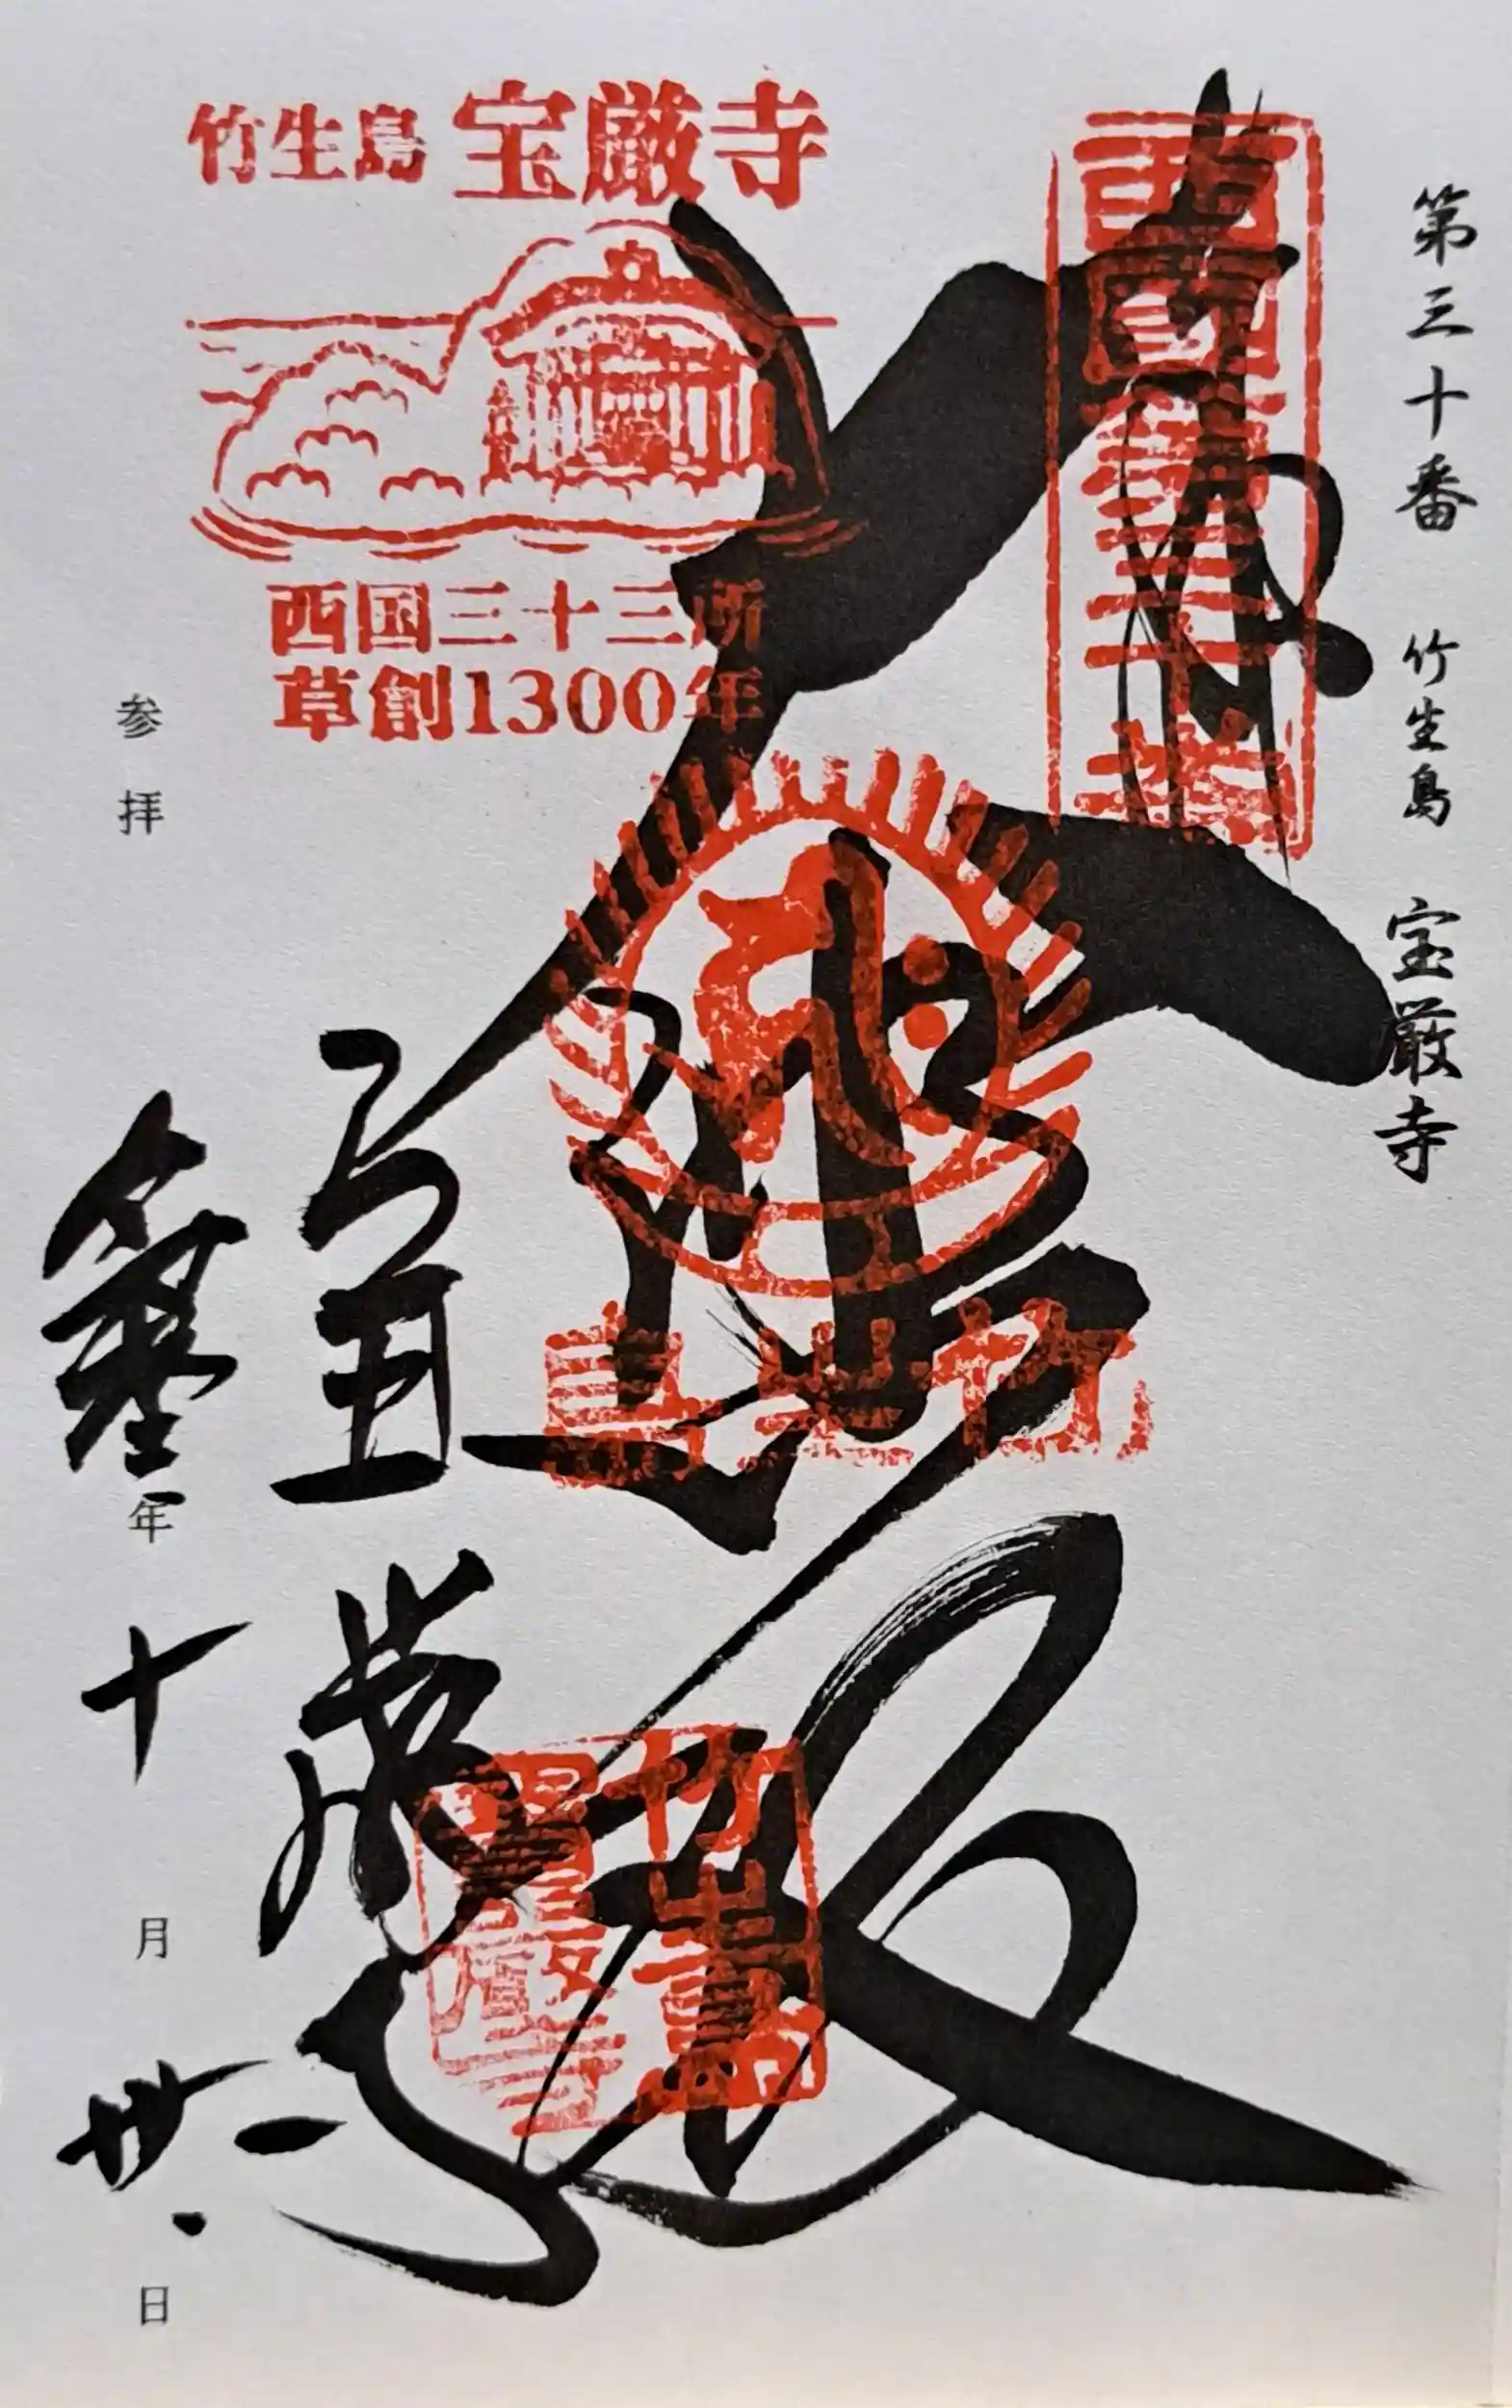 第三十番 竹生島 宝厳寺
奉拝
西國第三十番
大悲殿
竹生島 宝厳寺
西国三十三所
草創1300年
竹生島
竹生島
寶嚴寺
宝厳寺
参拝
年 十 月 日